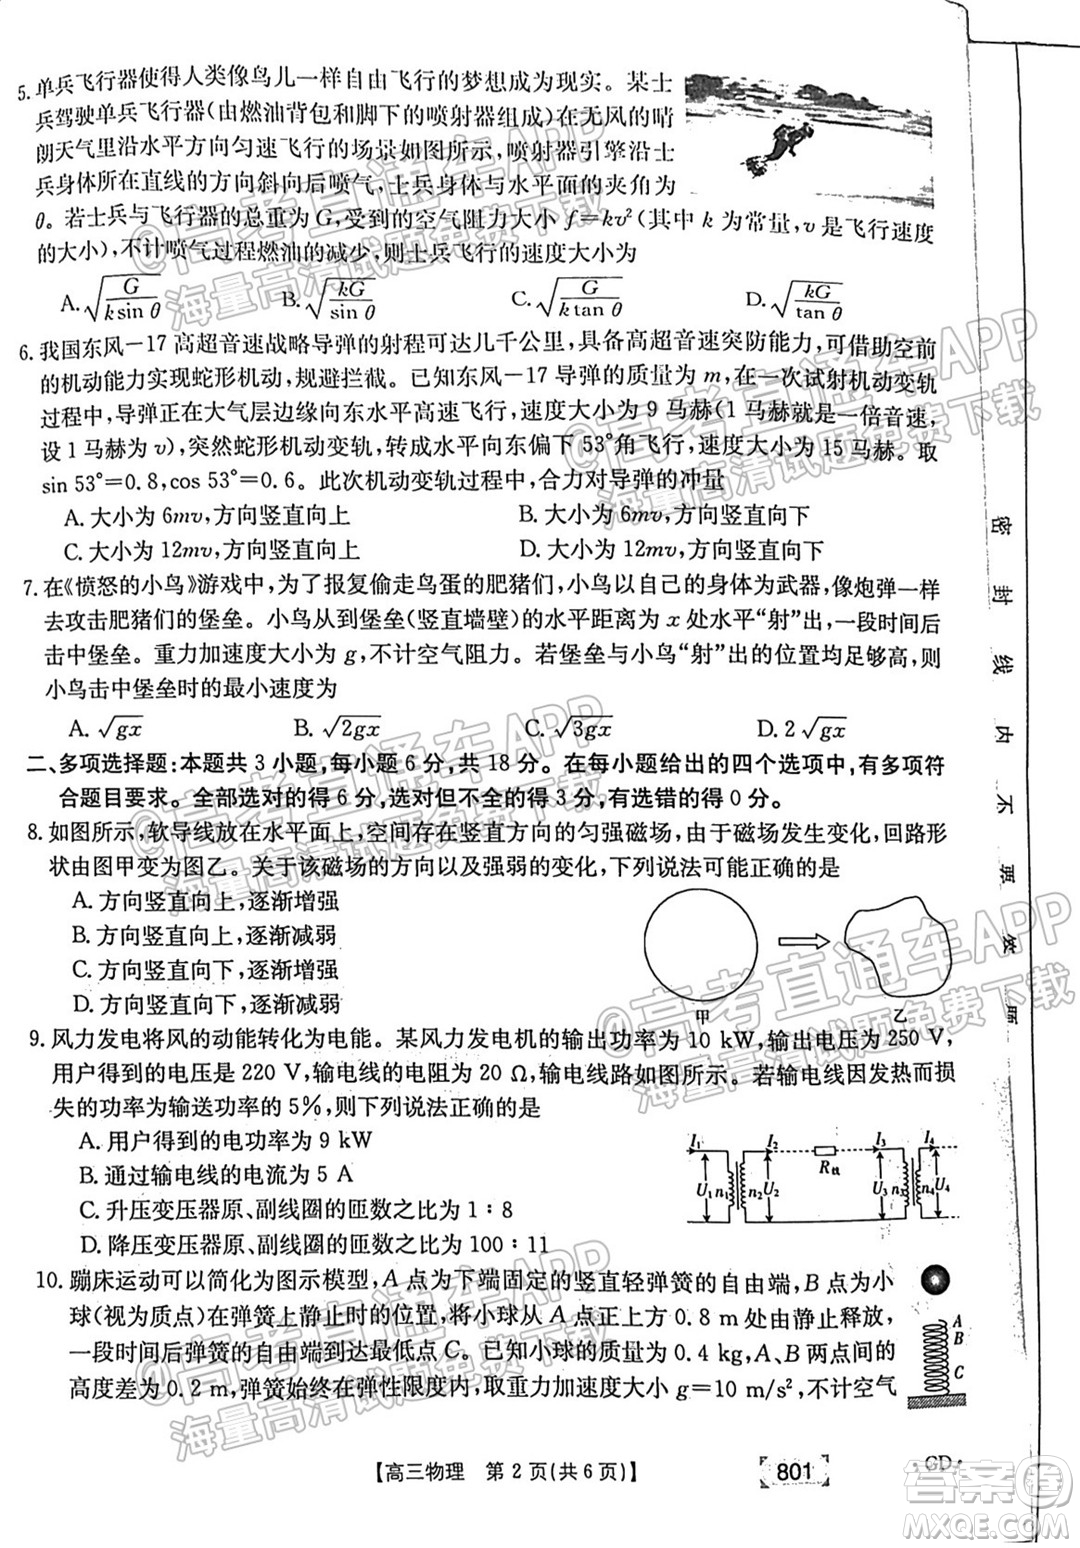 5. 单兵飞行器使得人类像鸟儿一样自由飞行的梦想成为现实。某士
兵驾驶单兵飞行器(由燃油背包和脚下的喷射器组成)在无风的晴
朗天气里沿水平方向匀速飞行的场景如图所示,喷射器引擎沿士
兵身体所在直线的方向斜向后喷气,士兵身体与水平面的夹角为
θ。若士兵与飞行器的总重为 G,受到的空气阻力大小 f=kv²(其中 k 为常量,v 是飞行速度
的大小),不计喷气过程燃油的减少,则士兵飞行的速度大小为
A. √(G/(k sin θ)) B. √(kG/sin θ) C. √(G/(k tan θ)) D. √(kG/tan θ)
6. 我国东风-17 高超音速战略导弹的射程可达几千公里,具备高超音速突防能力,可借助空前
的机动能力实现蛇形机动,规避拦截。已知东风-17 导弹的质量为 m,在一次试射机动变轨
过程中,导弹正在大气层边缘向东水平高速飞行,速度大小为 9 马赫(1 马赫就是一倍音速,
设 1 马赫为 v),突然蛇形机动变轨,转成水平向东偏下 53°角飞行,速度大小为 15 马赫。取
sin 53°=0.8,cos 53°=0.6。此次机动变轨过程中,合力对导弹的冲量
A. 大小为 6mv,方向竖直向上 B. 大小为 6mv,方向竖直向下
C. 大小为 12mv,方向竖直向上 D. 大小为 12mv,方向竖直向下
7. 在《愤怒的小鸟》游戏中,为了报复偷走鸟蛋的肥猪们,小鸟以自己的身体为武器,像炮弹一样
去攻击肥猪们的堡垒。小鸟从到堡垒(竖直墙壁)的水平距离为 x 处水平“射”出,一段时间后
击中堡垒。重力加速度大小为 g,不计空气阻力。若堡垒与小鸟“射”出的位置均足够高,则
小鸟击中堡垒时的最小速度为
A. √gx B. √2gx C. √3gx D. 2√gx
二、多项选择题:本题共 3 小题,每小题 6 分,共 18 分。在每小题给出的四个选项中,有多项符
合题目要求。全部选对的得 6 分,选对但不全的得 3 分,有选错的得 0 分。
8. 如图所示,软导线放在水平面上,空间存在竖直方向的匀强磁场,由于磁场发生变化,回路形
状由图甲变为图乙。关于该磁场的方向以及强弱的变化,下列说法可能正确的是
A. 方向竖直向上,逐渐增强
B. 方向竖直向上,逐渐减弱
C. 方向竖直向下,逐渐增强
D. 方向竖直向下,逐渐减弱
甲 乙
9. 风力发电将风的动能转化为电能。某风力发电机的输出功率为 10 kW,输出电压为 250 V,
用户得到的电压是 220 V,输电线的电阻为 20 Ω,输电线路如图所示。若输电线因发热而损
失的功率为输送功率的 5%,则下列说法正确的是
A. 用户得到的电功率为 9 kW
B. 通过输电线的电流为 5 A
C. 升压变压器原、副线圈的匝数之比为 1∶8
D. 降压变压器原、副线圈的匝数之比为 100∶11
I₁ I₂ I₃ I₄
R线
U₁ n₁ n₂ U₂ U₃ n₃ n₄ U₄
10. 蹦床运动可以简化为图示模型,A 点为下端固定的竖直轻弹簧的自由端,B 点为小
球(视为质点)在弹簧上静止时的位置,将小球从 A 点正上方 0.8 m 处由静止释放,
一段时间后弹簧的自由端到达最低点 C。已知小球的质量为 0.4 kg,A、B 两点间的
高度差为 0.2 m,弹簧始终在弹性限度内,重力加速度大小 g=10 m/s²,不计空气
A
B
C
【高三物理 第 2 页(共 6 页)】
801
·GD·
密封线内不要答题
@高考直通车APP
海量高清试题免费下载
@高考直通车APP
海量高清试题免费下载
@高考直通车APP
海量高清试题免费下载
@高考直通车APP
海量高清试题免费下载
@高考直通车APP
海量高清试题免费下载
答案圈
MXQE.COM